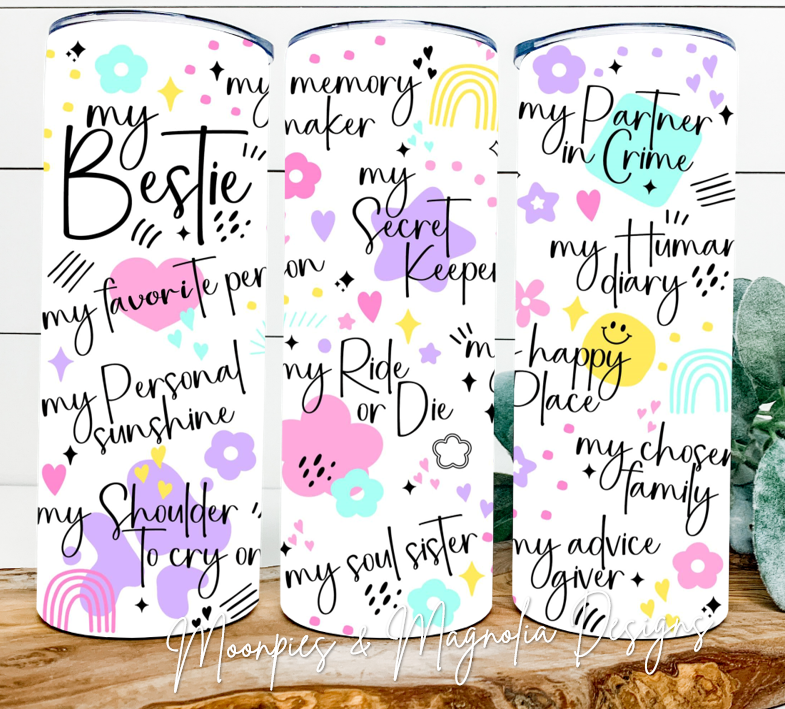 my
Bestie
my favorite per
my Personal
sunshine
my Shoulder
To cry on
my
memory
maker
my
Secret
Keeper
on
my Ride
or Die
my soul sister
my Partner
in Crime
my Human
diary
happy
Place
my chosen
family
my advice
giver
Moonpies & Magnolia Designs